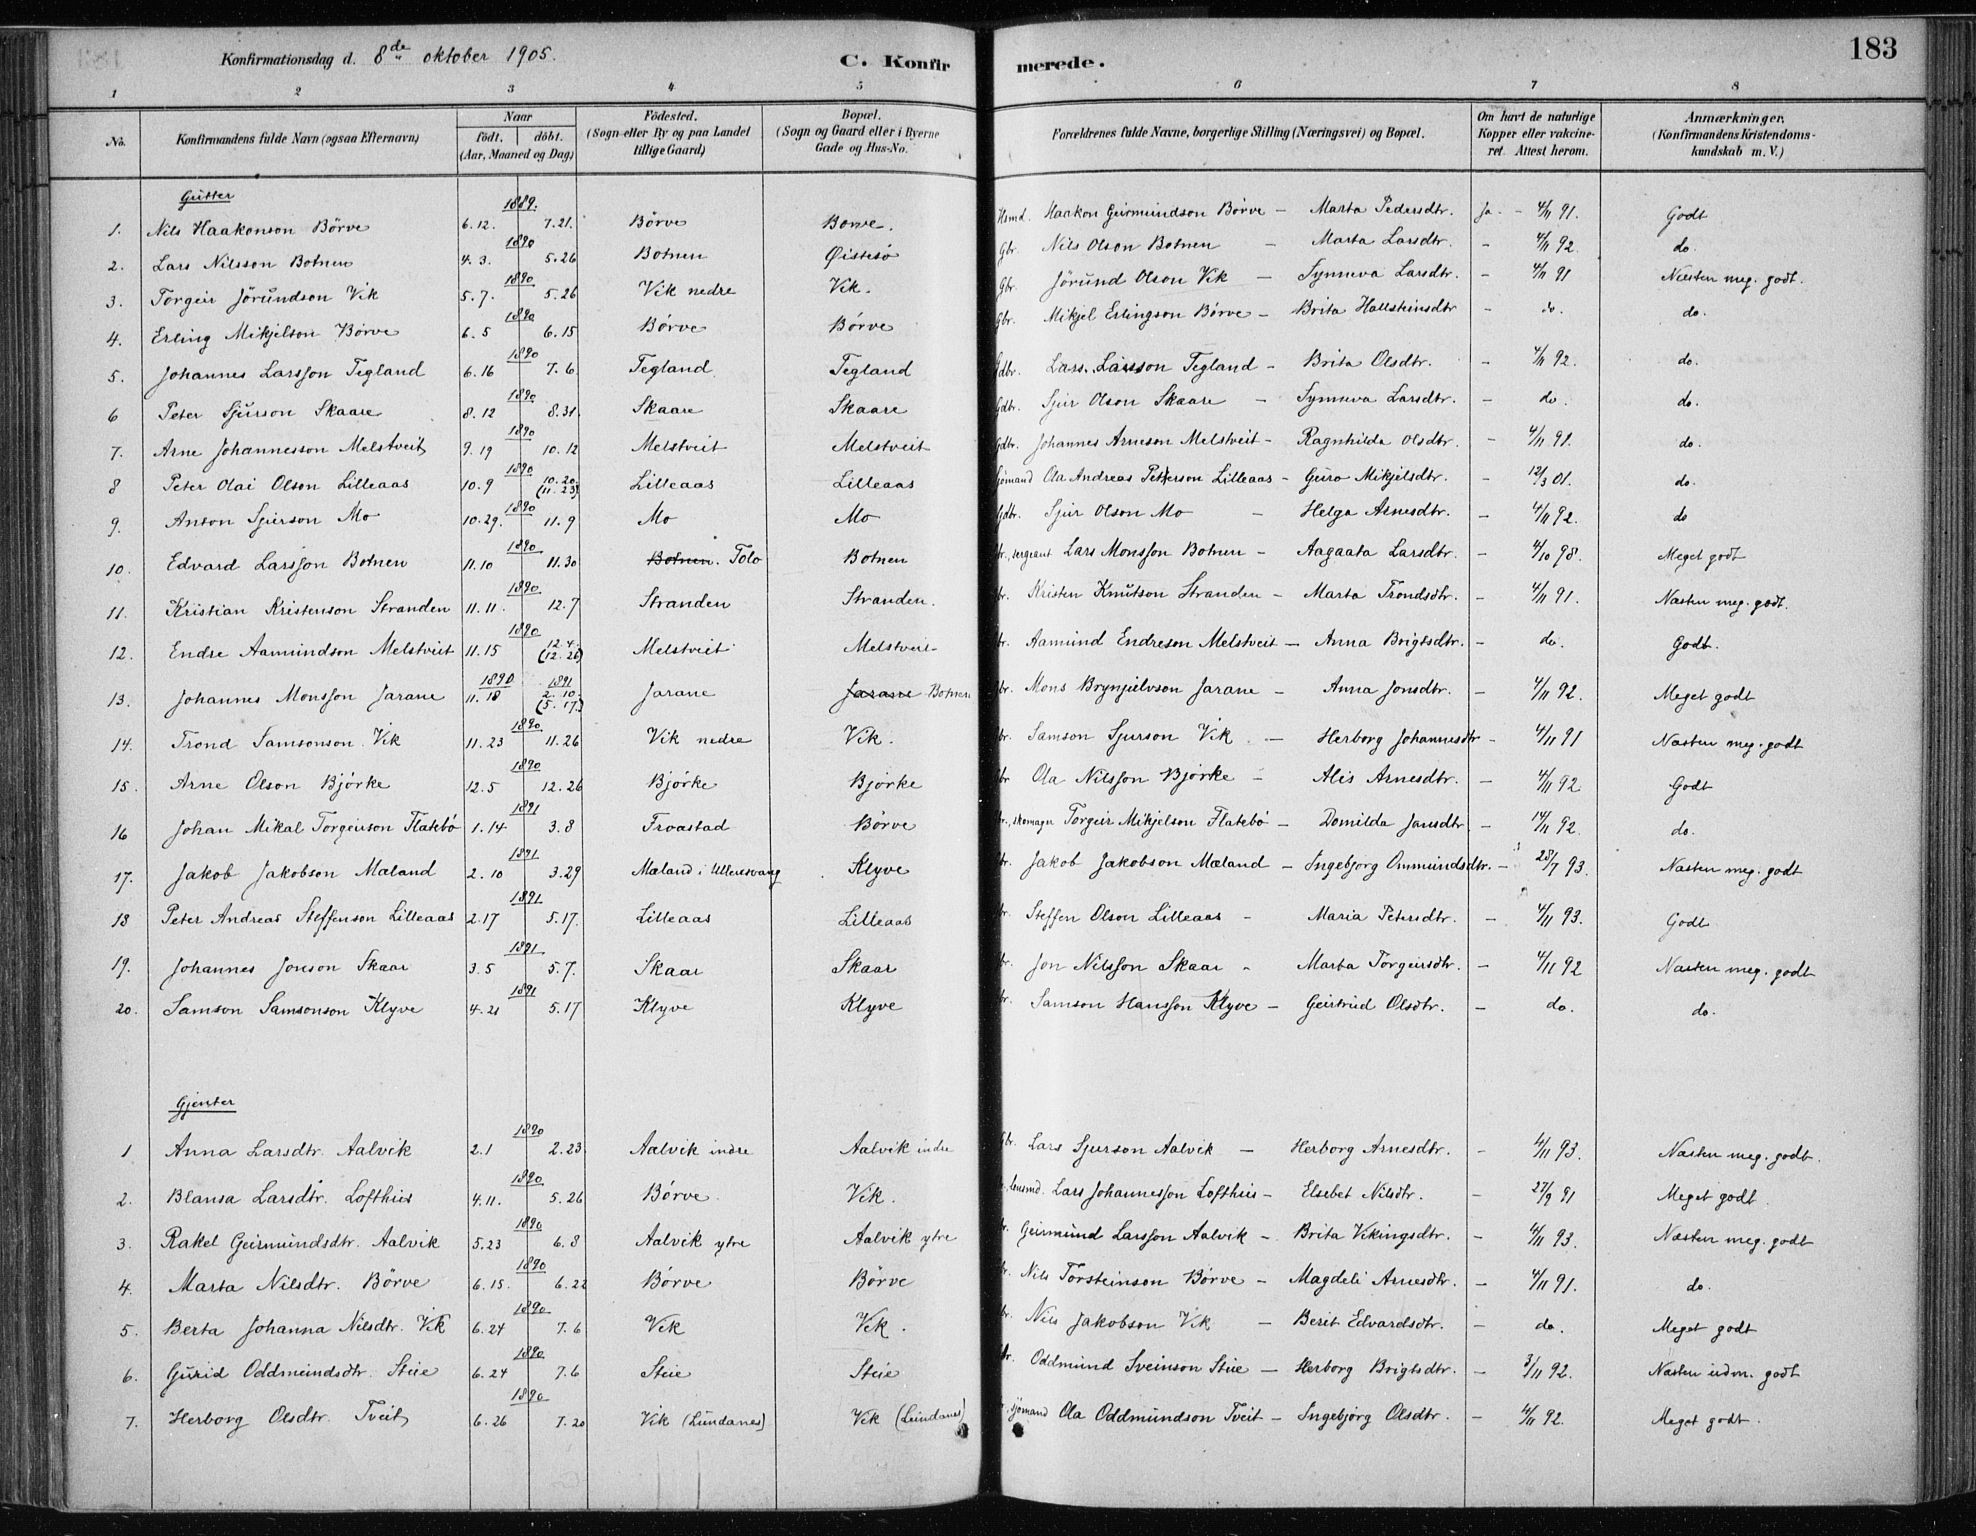 Konfirmationsdag d. 8de oktober 1905.
C. Konfirmerede.
183
1 2 3 4 5 6 7 8
No. Konfirmandens fulde Navn (ogsaa Efternavn) Naar født, døbt. (Aar, Maaned og Dag) Födested. (Sogn eller By og paa Landet tillige Gaard) Bopæl. (Sogn og Gaard eller i Byerne Gade og Hus-No. Forældrenes fulde Navne, borgerlige Stilling (Næringsvei) og Bopæl. Om havt de naturlige Kopper eller vakcineret. Attest herom. Anmærkninger. (Konfirmandens Kristendomskundskab m. V.)
Gutter
1. Nils Haakonson Börve 1889. 6.12. 7.21. Börve Börve. Husmd. Haakon Geirmundson Börve – Marta Pedersdtr. Ja. – 4/11 91. Godt
2. Lars Nilsson Botnen 1890 4.3. 5.26 Botnen Øistesø Gbr. Nils Olson Botnen – Marta Larsdtr. – 4/11 92. do.
3. Torgeir Jörundson Vik 1890 5.7. 5.26 Vik nedre Vik. Gbr. Jörund Olson Vik – Synneva Larsdtr. – 4/11 91 Næsten meg. godt.
4. Erling Mikjelson Börve 1890 6.5 6.15 Börve Börve Gbr. Mikjel Erlingson Börve – Brita Hallsteinsdtr – do. do.
5. Johannes Larsson Tegland 1890 6.16 7.6. Tegland Tegland Gdbr. Lars Larsson Tegland – Brita Olsdtr. – 4/11 92. do.
6 Peter Sjurson Skaare 1890 8.12 8.31. Skaare Skaare Gdbr. Sjur Olson Skaare – Synneva Larsdtr. – do. do.
7. Arne Johannesson Melstveit 1890 9.19 10.12 Melstveit Melstveit Gdbr. Johannes Arneson Melstveit – Ragnhilda Olsdtr. – 4/11 91. do.
8 Peter Olai Olson Lilleaas 1890 10.9 10.20. (11.23) Lilleaas Lilleaas Sjömand Ola Andreas Petterson Lilleaas – Guro Mikjelsdtr. – 12/3 01. do.
9. Anton Sjurson Mo 1890 10.29. 11.9 Mo Mo Gdbr. Sjur Olson Mo – Helga Arnesdtr. – 4/11 92. do
10. Edvard Larsson Botnen 1890 11.10 11.30 Botnen. Tolo Botnen br. sergeant Lars Monsson Botnen – Aagaata Larsdtr. – 4/10 98. Meget godt
11. Kristian Kristenson Stranden 1890 11.11. 12.7 Stranden Stranden. br. Kristen Knutson Stranden – Marta Trondsdtr. – 4/11 91. Næsten meg. godt.
12. Endre Aamundson Melstveit 1890 11.15 12.4. (12.26) Melstveit Melstveit br. Aamund Endreson Melstveit – Anna Brigtsdtr. – do. Godt.
13. Johannes Monsson Jarane 1890 11.18 1891 2.10. (5.17.) Jarane Jarane Botnen br. Mons Brynjulvson Jarane – Anna Jonsdtr. – 4/11 92. Meget godt
14. Trond Samsonson Vik 1890 11.23 11.26 Vik nedre Vik. br. Samson Sjurson Vik – Herborg Johannesdtr – 4/11 91 Næsten meg. godt
15. Arne Olson Bjørke 1890 12.5 12.26 Bjørke Bjørke br Ola Nilsson Bjørke – Alis Arnesdtr. – 4/11 92 Godt
16 Johan Mikal Torgeirson Flatebö 1891 1.14 3.8 Froastad Börve br., skomager Torgeir Mikjelson Flatebö – Domilda Jansdtr – 14/11 92. do.
17. Jakob Jakobson Mæland 1891 2.10 3.29 Mæland i Ullensvang Klyve br. Jakob Jakobson Mæland – Ingebjorg Ommundsdtr. – 28/7 93. Næsten meg. godt
18 Peter Andreas Steffenson Lilleaas 1891 2.17 5.17. Lilleaas Lilleaas br. Steffen Olson Lilleaas – Maria Petersdtr. – 4/11 93. Godt
19. Johannes Jonson Skaar 1891 3.5 5.7. Skaar Skaar br. Jon Nilsson Skaar – Marta Torgeirsdtr. – 4/11 92 Næsten meg. godt
20. Samson Samsonson Klyve 1891 4.21 5.17 Klyve Klyve br. Samson Hansson Klyve – Geirtrud Olsdtr. – do. do.
Gjenter
1 Anna Larsdtr. Aalvik 1890 2.1 2.23. Aalvik indre Aalvik indre Gbr. Lars Sjurson Aalvik – Herborg Arnesdtr. – 4/11 93. Næsten meg. godt.
2. Blansa Larsdtr. Lofthus 1890 4.11. 5.26 Börve Vik. lensmd. Lars Johannesson Lofthus – Elsebet Nilsdtr. – 27/9 91 Meget godt
3. Rakel Geirmundsdtr. Aalvik 1890 5.23 6.8 Aalvik ytre Aalvik ytre br. Geirmund Larsson Aalvik – Brita Vikingsdtr. – 4/11 93. Næsten meg. godt
4. Marta Nilsdtr. Börve 1890 6.15. 6.22 Börve Börve br. Nils Torsteinson Börve – Magdeli Arnesdtr. – 4/11 91. do.
5. Berta Johanna Nilsdtr. Vik 1890 6.24 7.6 Vik Vik. br. Nils Jakobson Vik – Berit Edvardsdtr. – do. Meget godt
6. Gurid Oddmundsdtr. Steie 1890 6.24 7.6 Steie Steie br. Oddmund Sveinson Steie – Herborg Brigtsdtr. – 3/11 92. Næsten udm. godt
7. Herborg Olsdtr. Tveit 1890 6.26 7.20 Vik (Lundanes) Vik (Lundanes) sjömand Ola Oddmundson Tveit – Ingebjörg Olsdtr. – 4/11 92. Meget godt.